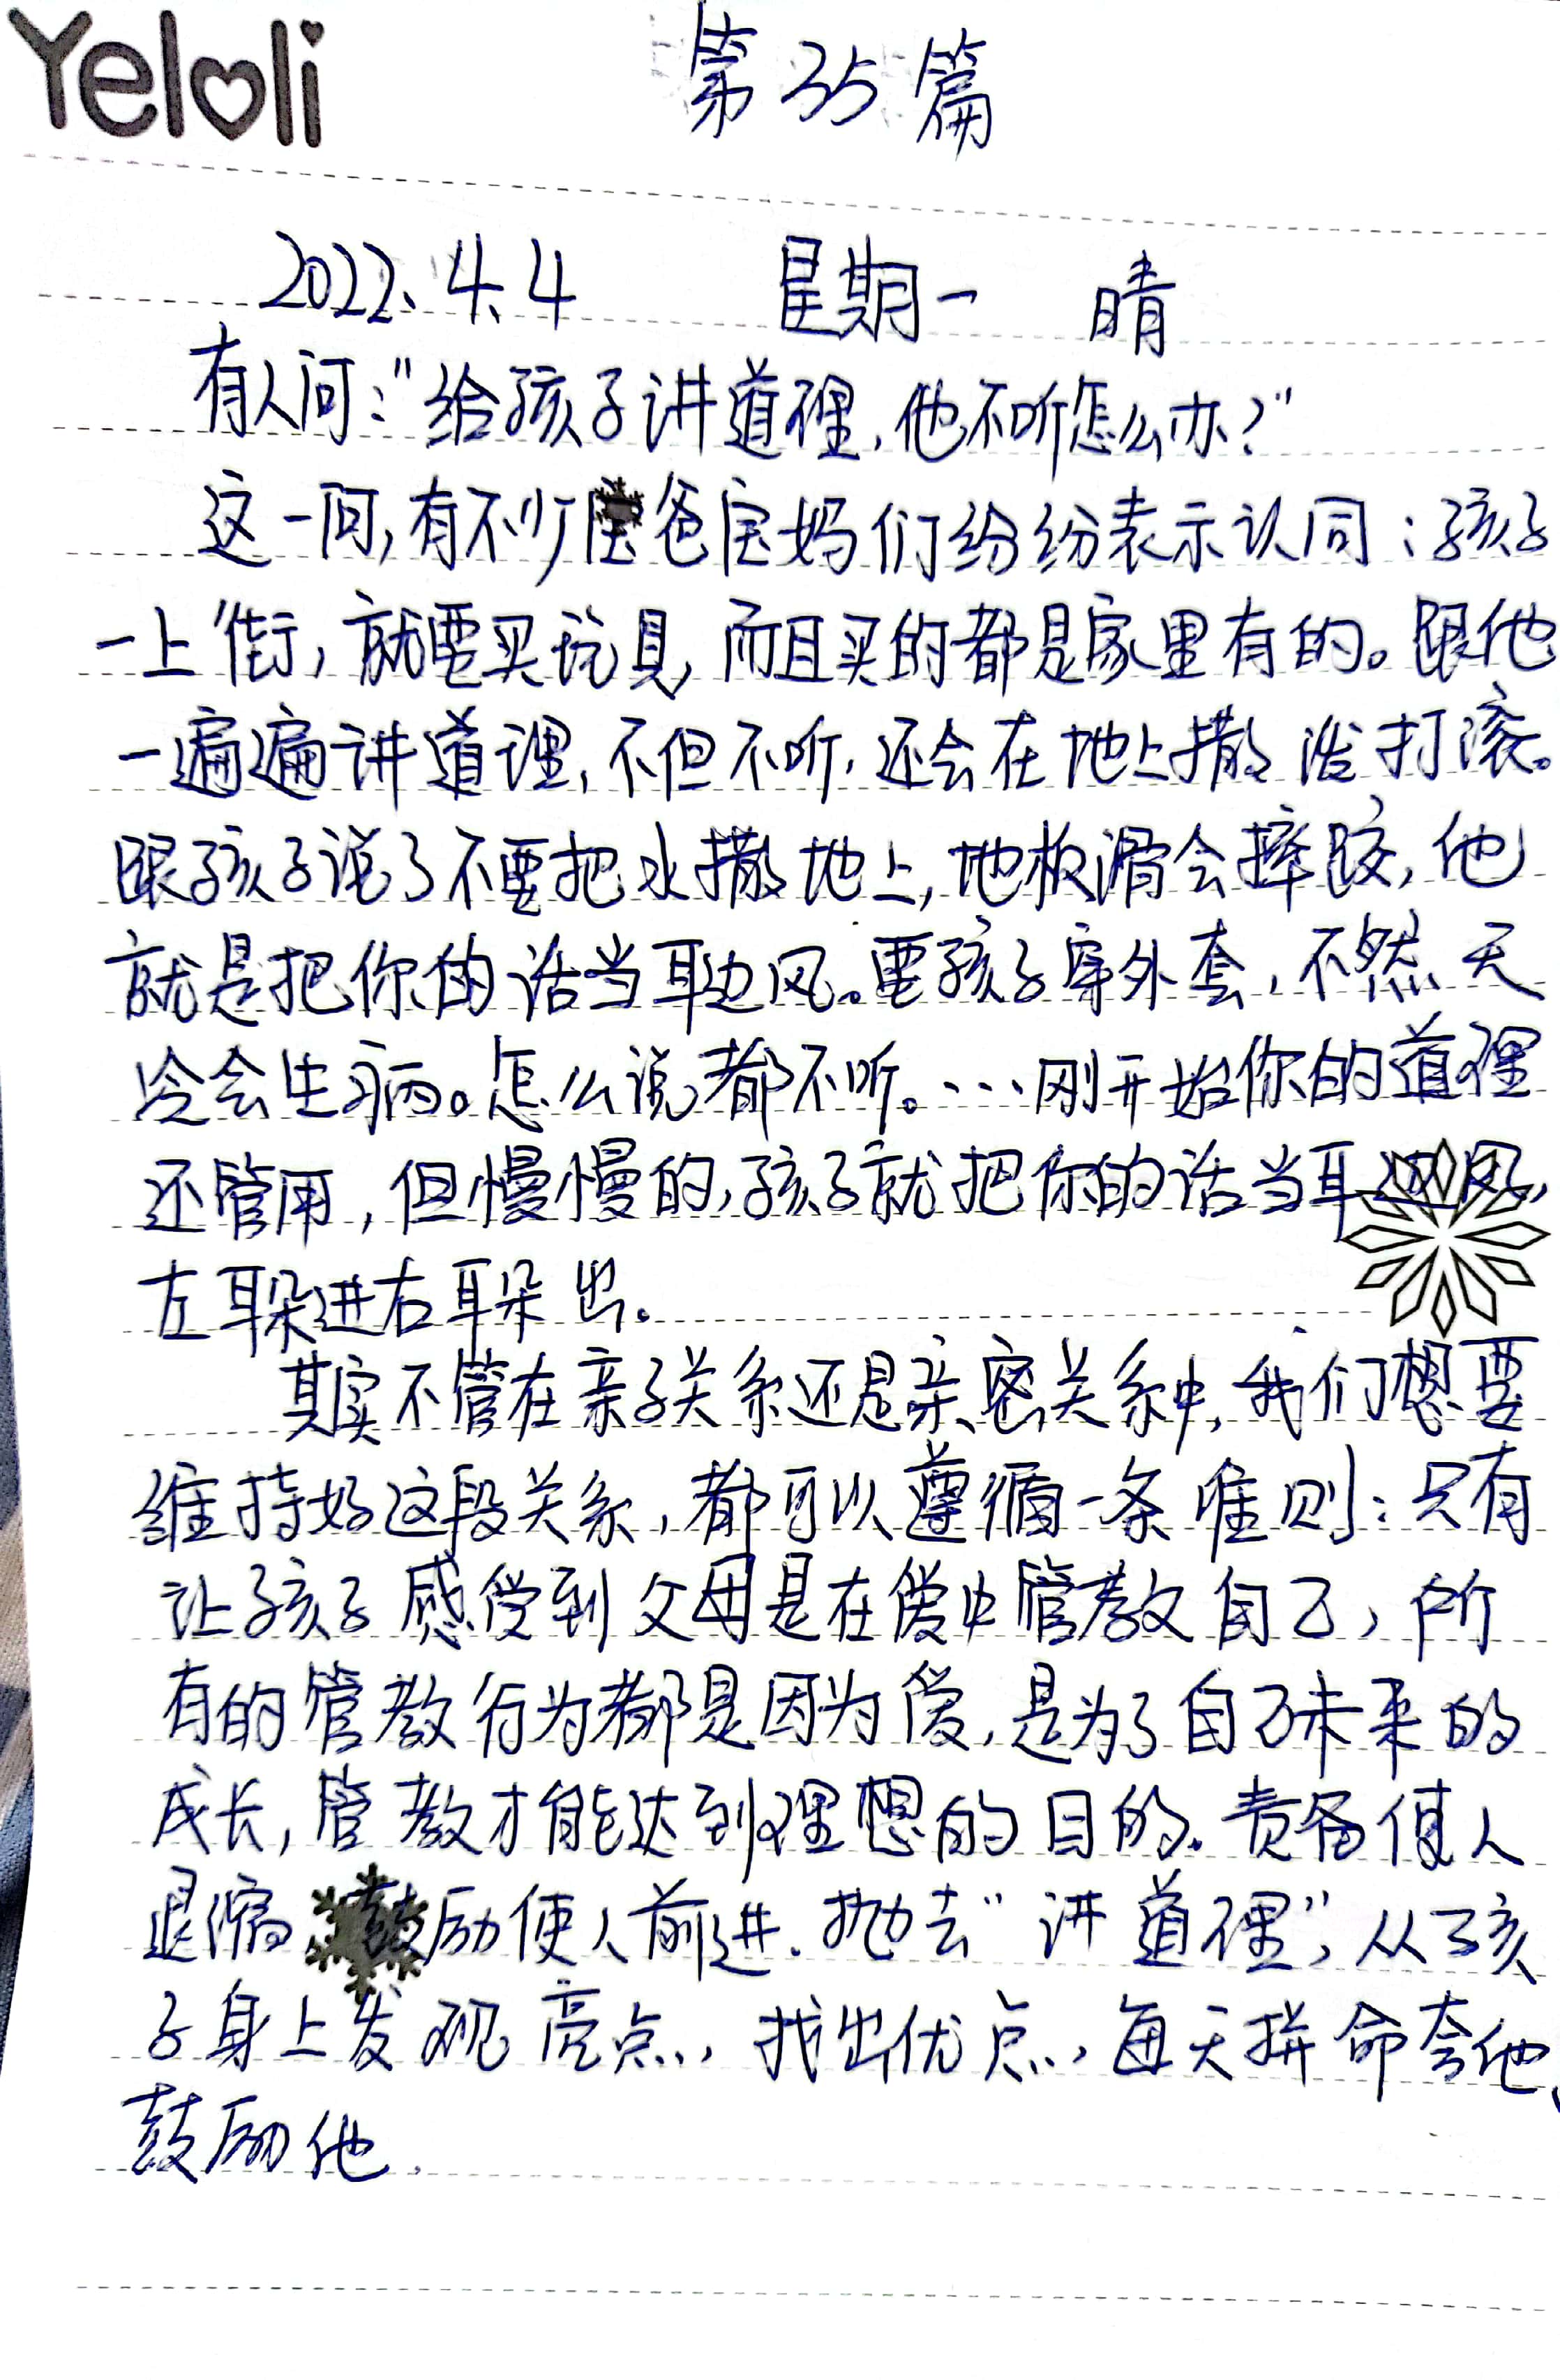 Yeloli
第35篇
2022.4.4 星期一 晴
有人问:"给孩子讲道理,他不听怎么办?"
这一问,有不少宝爸宝妈们纷纷表示认同:孩子
一上街,就要买玩具,而且买的都是家里有的。跟他
一遍遍讲道理,不但不听,还会在地上撒泼打滚。
跟孩子说了不要把水撒地上,地板滑会摔跤,他
就是把你的话当耳边风。要孩子穿外套,不然天
冷会生病。怎么说都不听。…刚开始你的道理
还管用,但慢慢的,孩子就把你的话当耳边风,
左耳朵进右耳朵出。
其实不管在亲子关系还是亲密关系中,我们想要
维持好这段关系,都可以遵循一条准则:只有
让孩子感受到父母是在爱中管教自己,所
有的管教行为都是因为爱,是为了自己未来的
成长,管教才能达到理想的目的.责备使人
退缩,鼓励使人前进.抛去"讲道理",从孩
子身上发现亮点,找出优点,每天拼命夸他、
鼓励他.